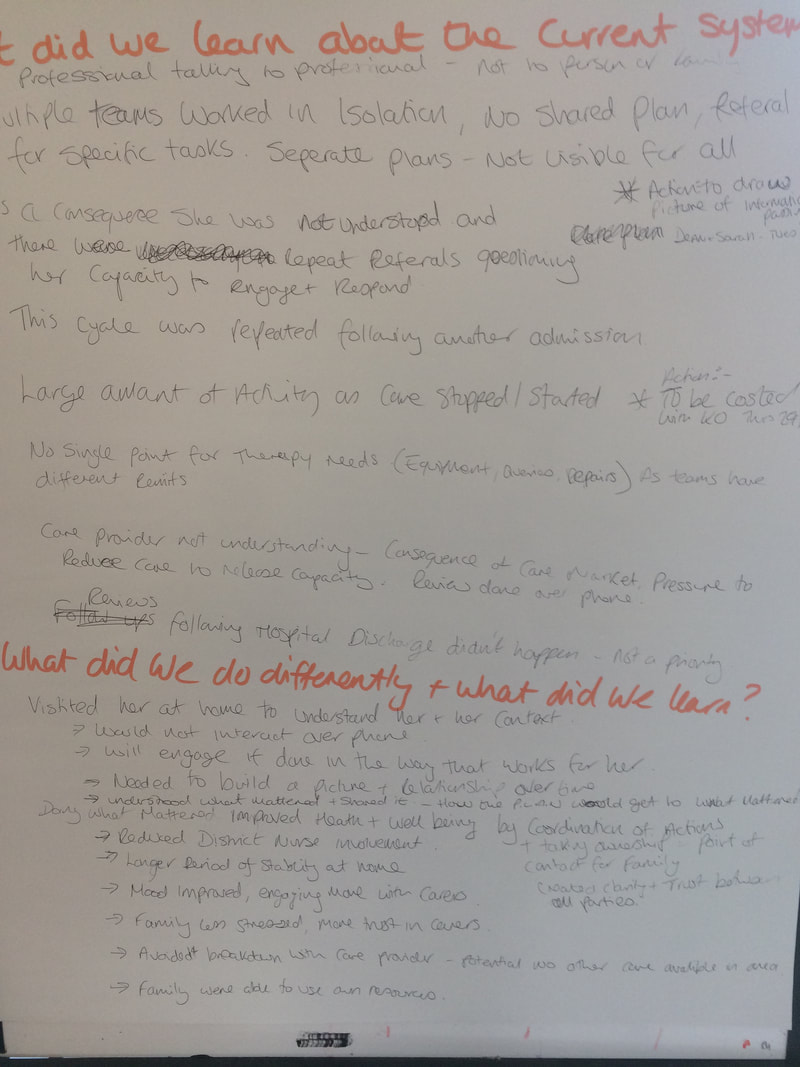 t did we learn about the current system
Professional talking to professional - not to person or
ultiple teams worked in Isolation, No shared plan, Referal
for specific tasks. Seperate plans - Not visible for all
* Action to draw
picture of
s a Consequence She was not understood and
Dean + Sarah. Tues
there were Repeat Referals questioning
her Capacity to engage + Respond
This cycle was repeated following another admission
Action:-
Large amount of Activity as Care Stopped / Started * To be costed
with KO 29
No Single point for Therapy needs (Equipment, repairs) As teams have
different Remits
Care provider not understanding - Consequence of Care Market. Pressure to
Reduce Care to release Capacity. Review done over phone.
Reviews
following Hospital Discharge didn't happen - not a priority
What did we do differently + what did we learn?
Visited her at home to understand her + her Context.
→ Would not interact over phone
→ Will engage if done in the way that works for her.
→ Needed to build a picture + Relationship over time
→ understood what mattered + shared it - How the PLAN would get to what mattered
Doing what Mattered Improved Heath + Well being by Coordination of Actions
→ Reduced District Nurse involvement. + taking ownership - point of
contact for Family
→ Longer Period of Stablity at home
Created clarity + Trust between
all parties.
→ Mood Improved, engaging more with Carers
→ Family less stressed, more trust in carers.
→ Avoided breakdown with Care provider - potential no other care available in area
→ Family were able to use own resources.